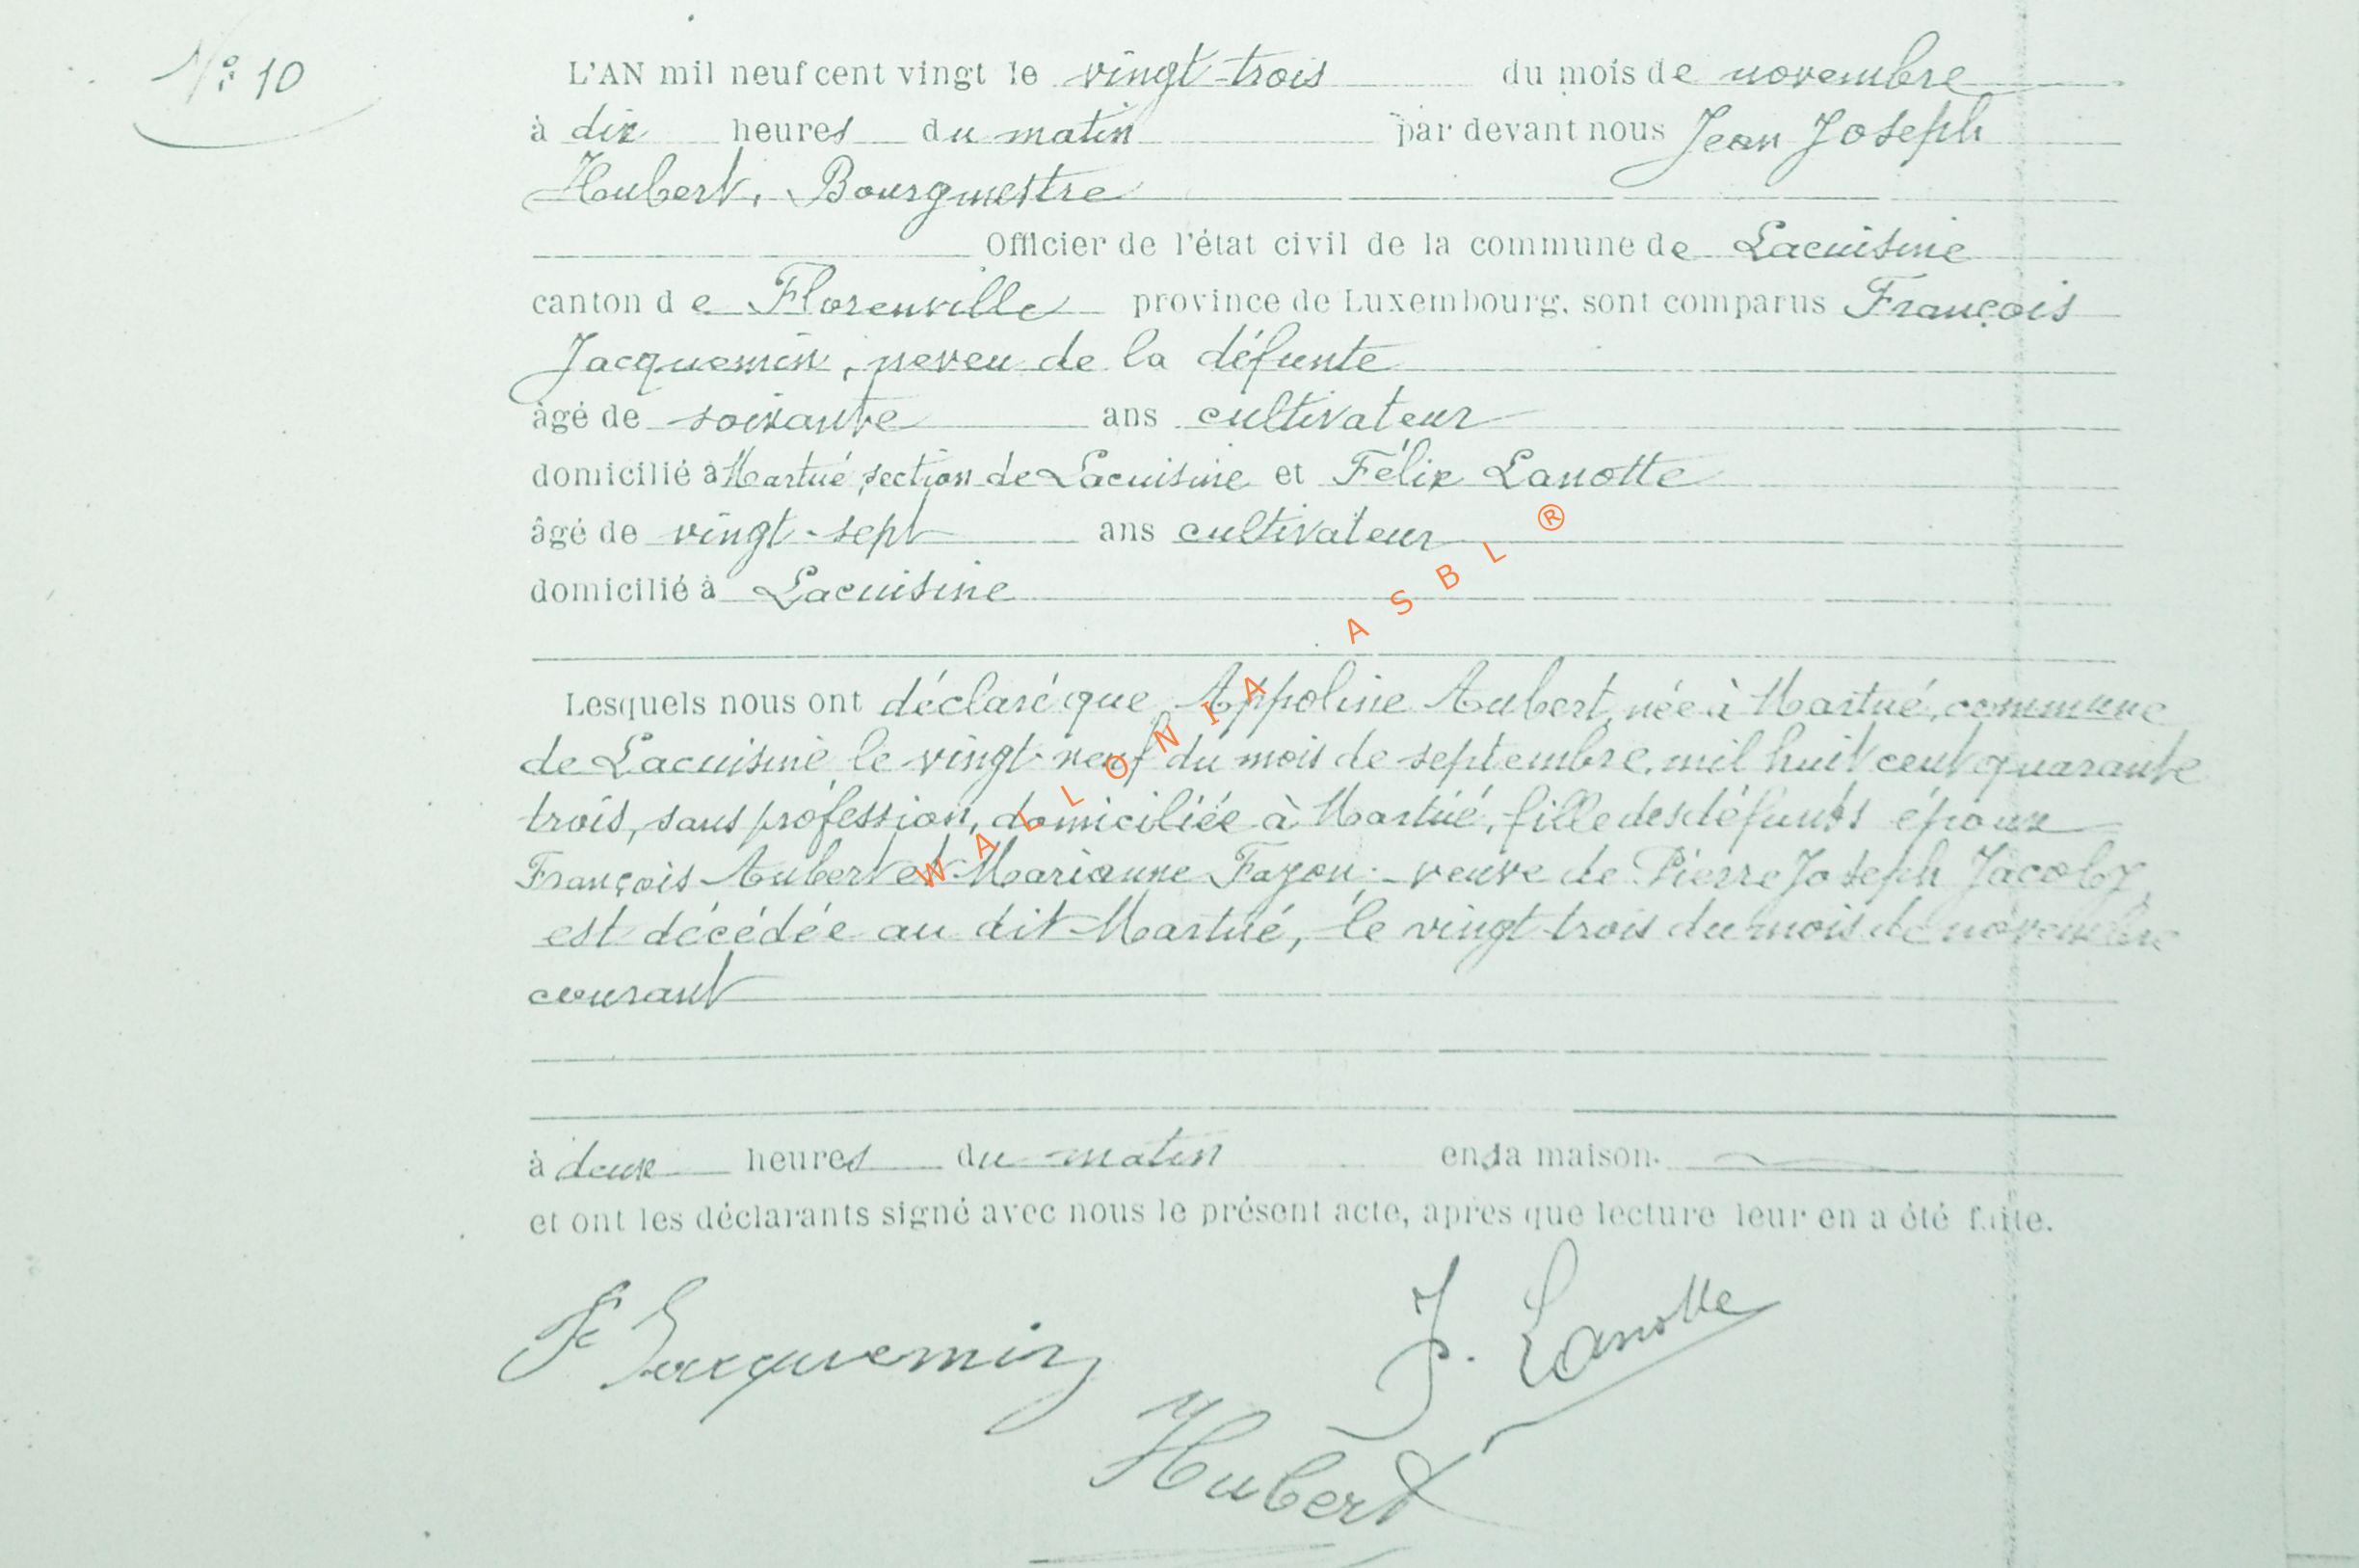 N° 10
L'AN mil neuf cent vingt le vingt-trois du mois de novembre
à dix heures du matin par devant nous Jean Joseph
Hubert, Bourgmestre
Officier de l'état civil de la commune de Lacuisine
canton de Florenville province de Luxembourg, sont comparus François
Jacquemin, neveu de la défunte
âgé de soixante ans cultivateur
domicilié à Martué section de Lacuisine et Félix Lanotte
âgé de vingt-sept ans cultivateur
domicilié à Lacuisine
Lesquels nous ont déclaré que Appoline Aubert, née à Martué, commune
de Lacuisine le vingt-neuf du mois de septembre, mil huit cent quarante
trois, sans profession, domiciliée à Martué, fille des défunts époux
François Aubert et Marianne Fayon; veuve de Pierre Joseph Jacoby,
est décédée au dit Martué, le vingt trois du mois de novembre
courant
à deux heures du matin en sa maison.
et ont les déclarants signé avec nous le présent acte, après que lecture leur en a été faite.
F Jacquemin
F. Lanotte
Hubert
WALLONIA ASBL ®